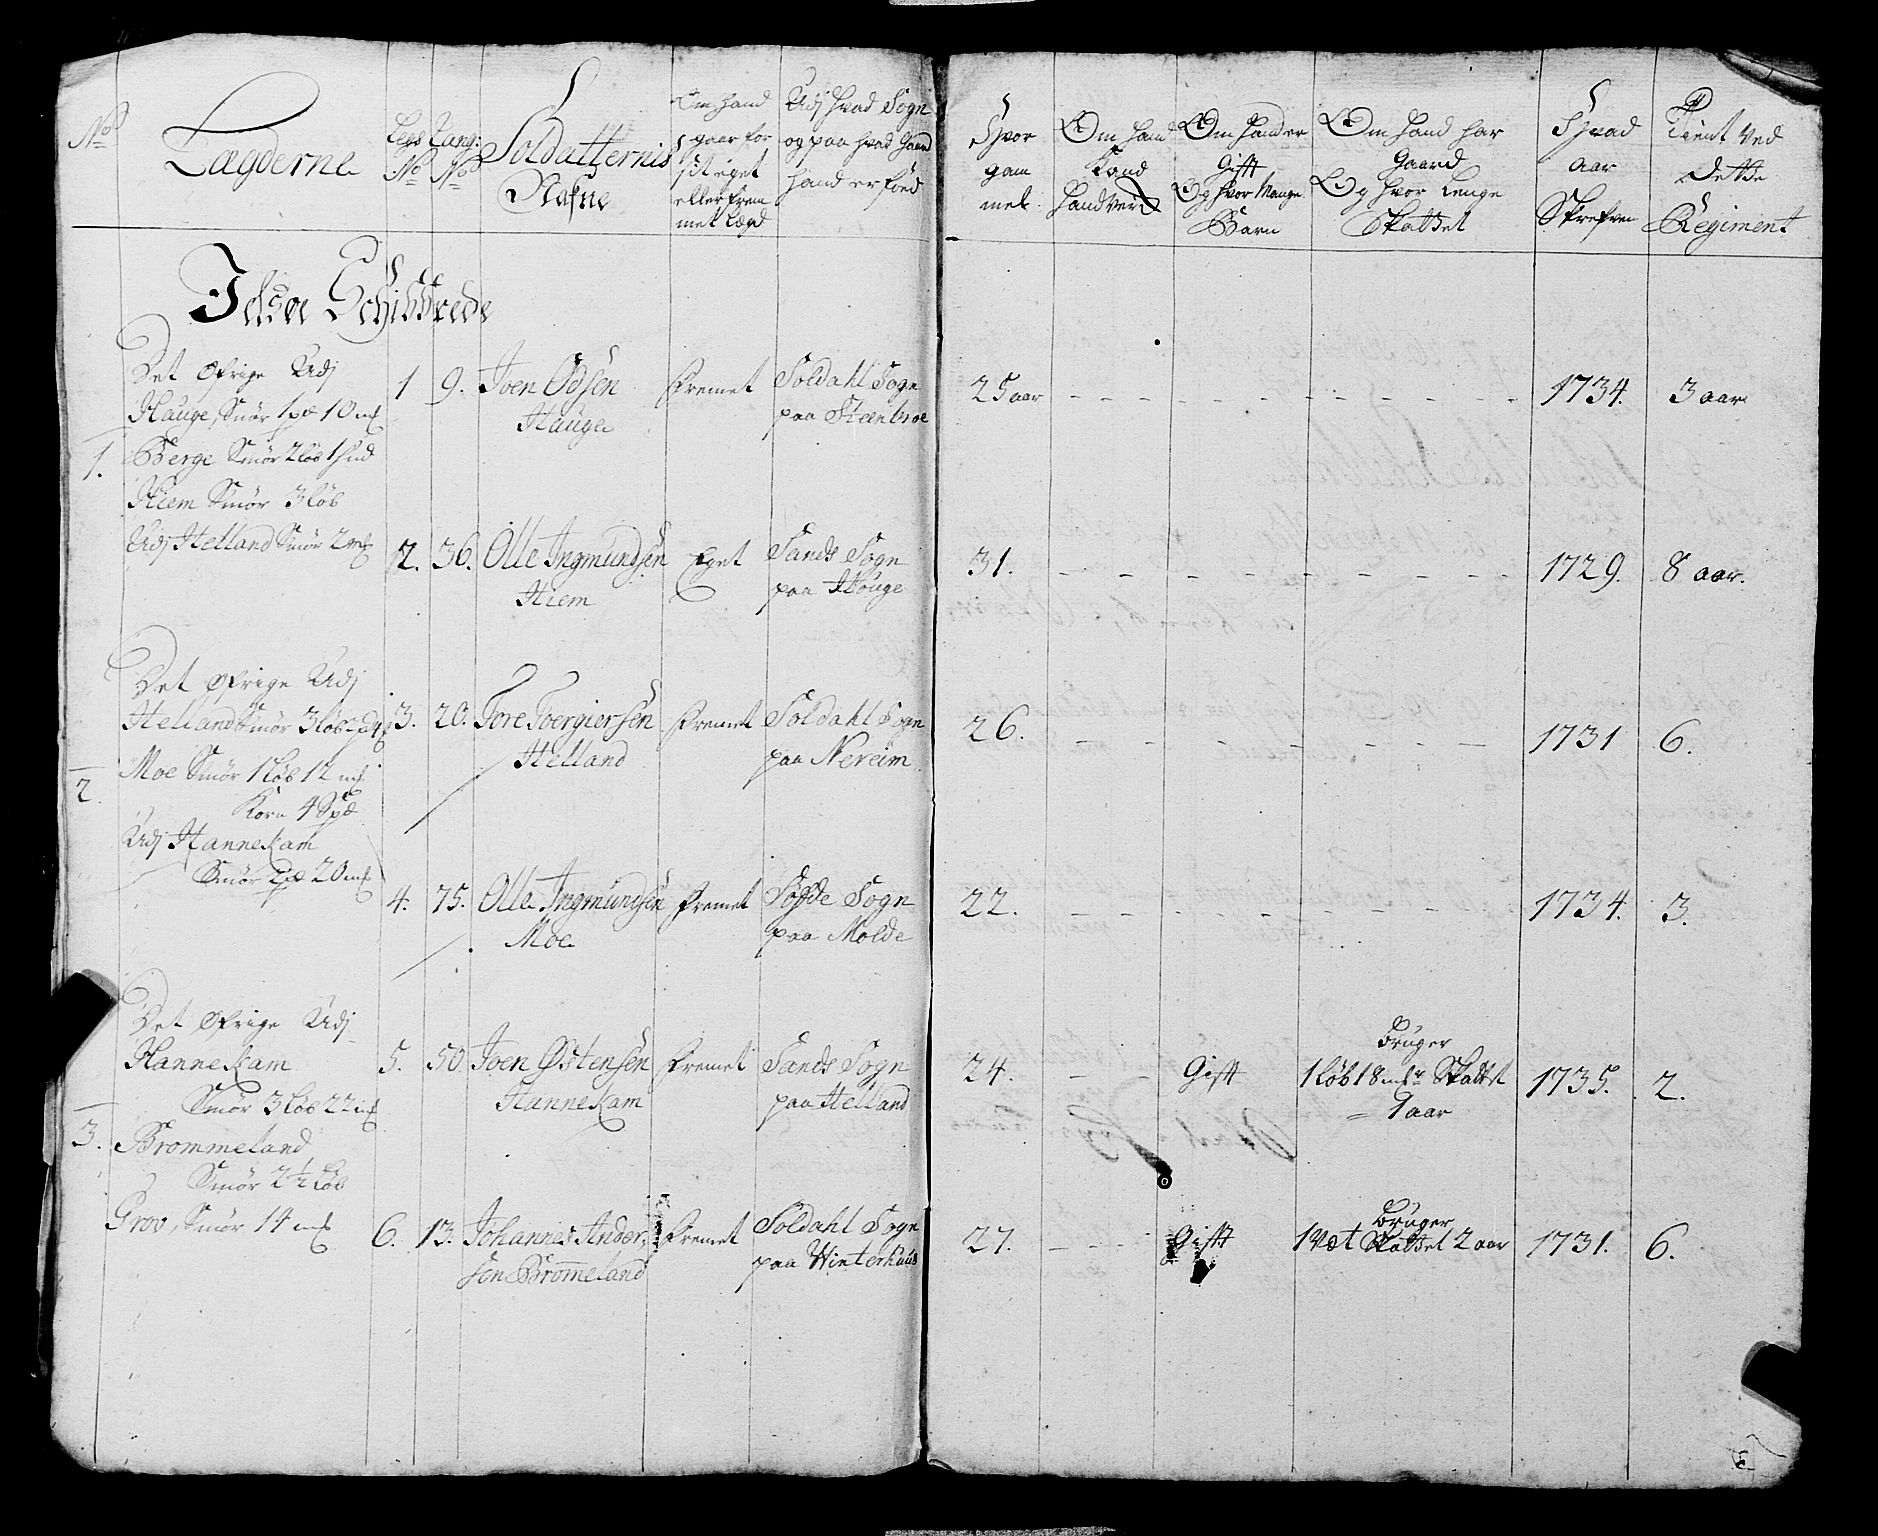 No
Lægderne
Legs No
Rang: No
Soldatternis
Nafne
Om hand
gaar for
sit eget
eller frem
met Lægd
Udj hvad Sogn
og paa hvad Gaard
hand er føed
Hvor
gam
mel
Om hand
Kand
Handverk
Om hand er
Gift
Og hvor Mange
Barn
Om hand har
Gaard
Og hvor Lenge
Skattet
Hvad
aar
Skrefven
Tient ved
dette
Regiment
Jelsøe Schibbrede
1.
Det Øfrige Udj
Hauge, Smør 1 pd 10 mk
Berge Smør 2 løb 1 hud
Hiem Smør 3 løb
Udj Helland Smør 2 mk
1 9. Joen Odsen
Hauge
Fremet
Soldahl Sogn
paa Steenbroe
25 aar
1734.
3 aar
2. 36. Olle Ingmundsen
Hiem
Eget
Sands Sogn
paa Houge
31.
1729.
8 aar.
2.
Det Øfrige Udj
Helland Smør 3 løb
Moe Smør 1 løb 12 mk
Korn 4 Spd
Udj Hannekam
Smør 2 pd 20 mk
3. 20. Tore Toergiersen
Helland
Fremet
Soldahl Sogn
paa Nereim
26.
1731
6.
4. 75. Olle Ingmundsen
Moe
Fremet
Sogde Sogn
paa Molde
22.
1734.
3.
3.
Det Øfrige Udj
Hannekam
Smør 3 løb 22 mk
Brommeland
Smør 2 1/2 løb
Grov, Smør 14 mk
5. 50 Joen Østensen
Hannekam
Fremet
Sands Sogn
paa Helland
24.
Gift
Bruger
1 løb 18 mkr Skattet
1 aar
1735.
2.
6. 13. Johannes Ander
sen Bromeland
Fremet
Soldahl Sogn
paa Winterhuus
27.
Gift
Bruger
1 Væt Skattet 2 aar
1731.
6.